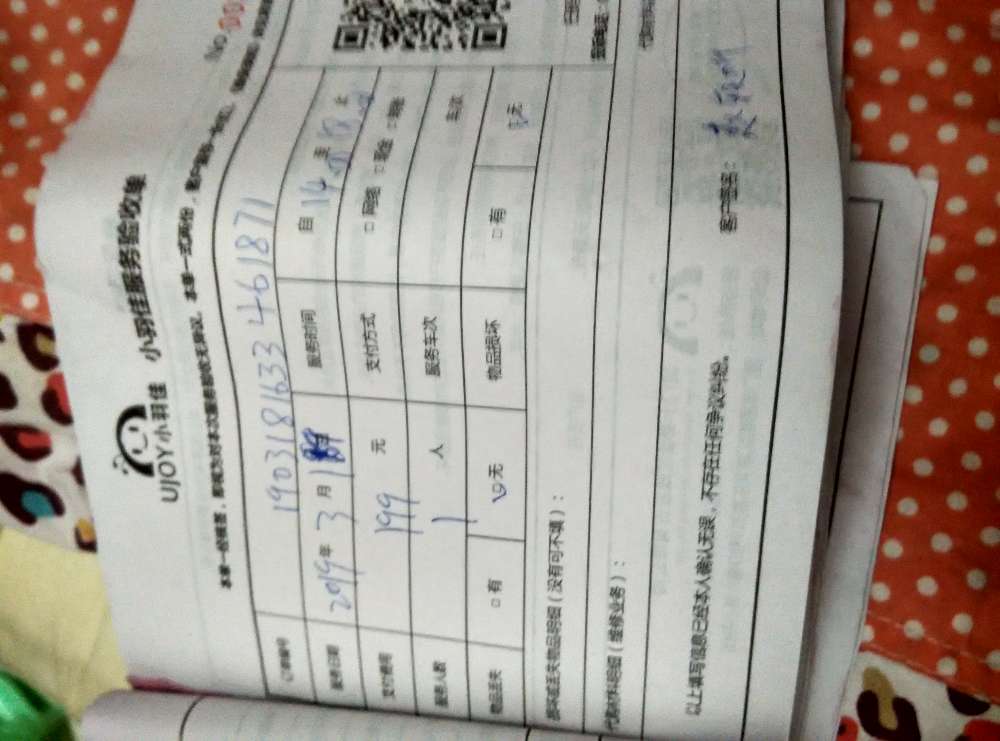 No 00
UJOY小羽佳 小羽佳服务验收单
本单一经接签，即视为对本次服务验收无异议。本单一式两份，客户联
订单编号 1903181633461871
服务日期 2019年3月 服务时间 自 14 至 18 止
支付费用 199 元 支付方式 □网络 □现金
服务人数 1 人 服务车次 车次
物品丢失 □有 无 物品损坏 □有 无
损坏或丢失物品明细（没有可不填）：
代购材料明细（维修业务）：
以上填写信息已经本人确认无误，不存在任何争议纠纷。 客户签名：